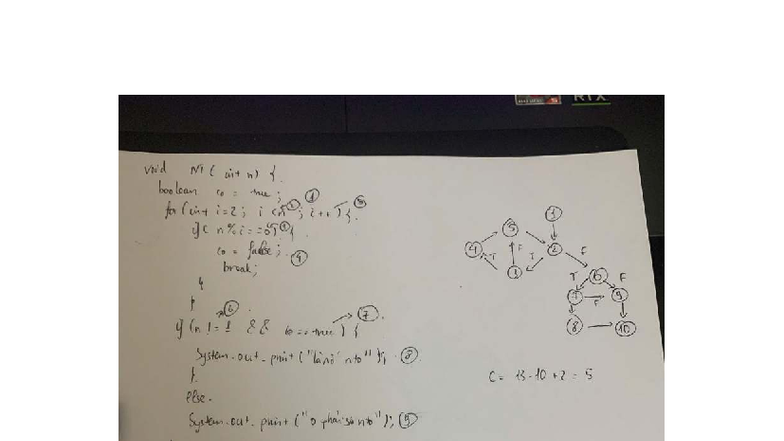 RTX
void NT ( int n) {
boolean co = true ; 1
for (int i=2 ; i < n 2 ; i++) { 5
if ( n % i == 0) 3 {
co = false ;
break; 4
}
}
6
7
if (n != 1 && co == true ) {
System.out.print ("là số nto"); 8
}
else
System.out.print ("0 phải số nto"); 9
1
5
2
4
3
F
T
F
6
T
F
7
F
9
8
10
C = 13 - 10 + 2 = 5